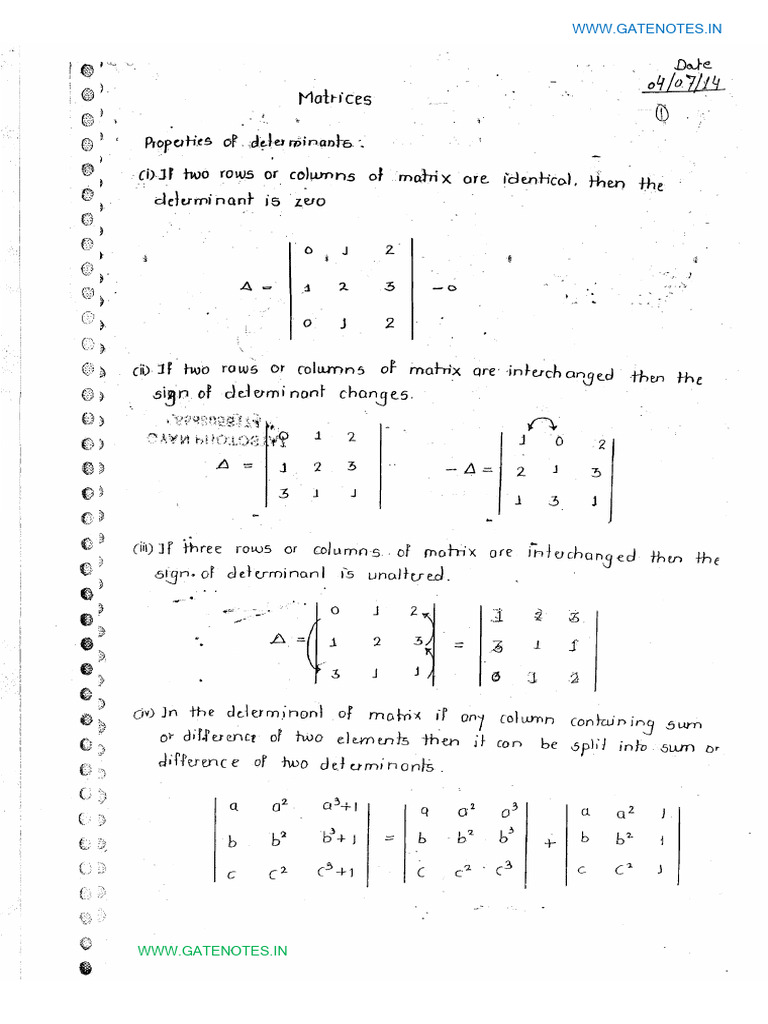 WWW.GATENOTES.IN
Date
04/07/14
Matrices
①
Properties of determinants:
(i) If two rows or columns of matrix are identical, then the
determinant is zero
0 1 2
Δ = 1 2 3 = 0
0 1 2
(ii) If two rows or columns of matrix are interchanged then the
sign of determinant changes.
0 1 2 1 0 2
Δ = 1 2 3 - Δ = 2 1 3
3 1 1 1 3 1
(iii) If three rows or columns of matrix are interchanged then the
sign of determinant is unaltered.
0 1 2 1 2 3
Δ = 1 2 3 = 3 1 1
3 1 1 0 1 2
(iv) In the determinant of matrix if any column containing sum
or difference of two elements then it can be split into sum or
difference of two determinants.
a a² a³+1 a a² a³ a a² 1
b b² b³+1 = b b² b³ + b b² 1
c c² c³+1 c c² c³ c c² 1
WWW.GATENOTES.IN